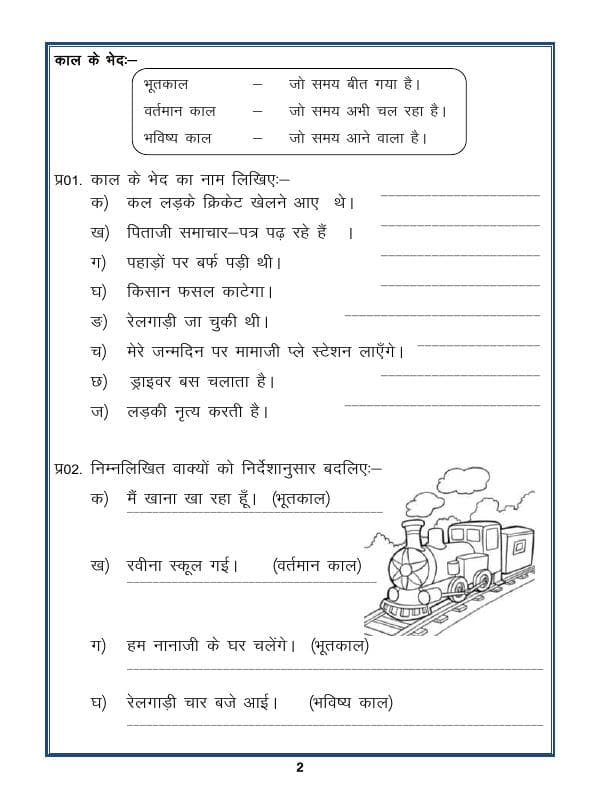 काल के भेदः–
भूतकाल – जो समय बीत गया है।
वर्तमान काल – जो समय अभी चल रहा है।
भविष्य काल – जो समय आने वाला है।
प्र01. काल के भेद का नाम लिखिएः–
क) कल लड़के क्रिकेट खेलने आए थे।
ख) पिताजी समाचार–पत्र पढ़ रहे हैं ।
ग) पहाड़ों पर बर्फ पड़ी थी।
घ) किसान फसल काटेगा।
ङ) रेलगाड़ी जा चुकी थी।
च) मेरे जन्मदिन पर मामाजी प्ले स्टेशन लाएँगे।
छ) ड्राइवर बस चलाता है।
ज) लड़की नृत्य करती है।
प्र02. निम्नलिखित वाक्यों को निर्देशानुसार बदलिएः–
क) मैं खाना खा रहा हूँ। (भूतकाल)
ख) रवीना स्कूल गई। (वर्तमान काल)
ग) हम नानाजी के घर चलेंगे। (भूतकाल)
घ) रेलगाड़ी चार बजे आई। (भविष्य काल)
2